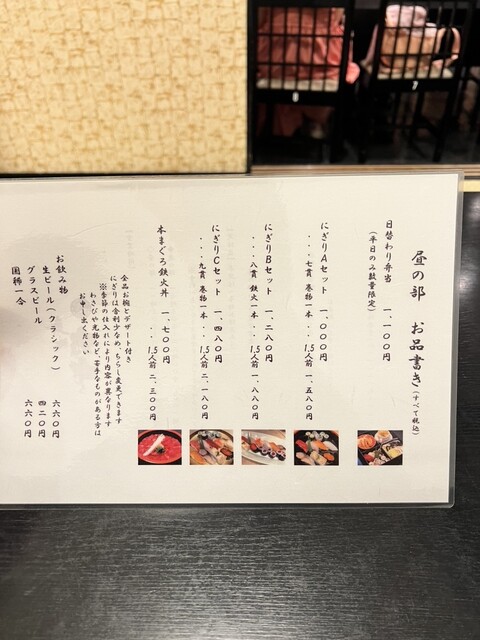 昼の部　お品書き（すべて税込）
日替わり弁当　一、一〇〇円
（平日のみ数量限定）
にぎりAセット　一、〇〇〇円
・・・七貫 巻物一本　・・・1.5人前 一、五八〇円
にぎりBセット　一、二八〇円
・・・八貫 鉄火一本　・・・1.5人前 一、八八〇円
にぎりCセット　一、四八〇円
・・・九貫 巻物一本　・・・1.5人前 二、一八〇円
本まぐろ鉄火丼　一、七〇〇円
1.5人前 二、三〇〇円
全品お椀とデザート付き
にぎりは舎利少なめ、ちらし変更できます
※季節の仕入れにより内容が異なります
わさびや光物など、苦手なものがある方は
お申し出ください
お飲み物
生ビール（クラシック）　六六〇円
グラスビール　四二〇円
國稀一合　六六〇円